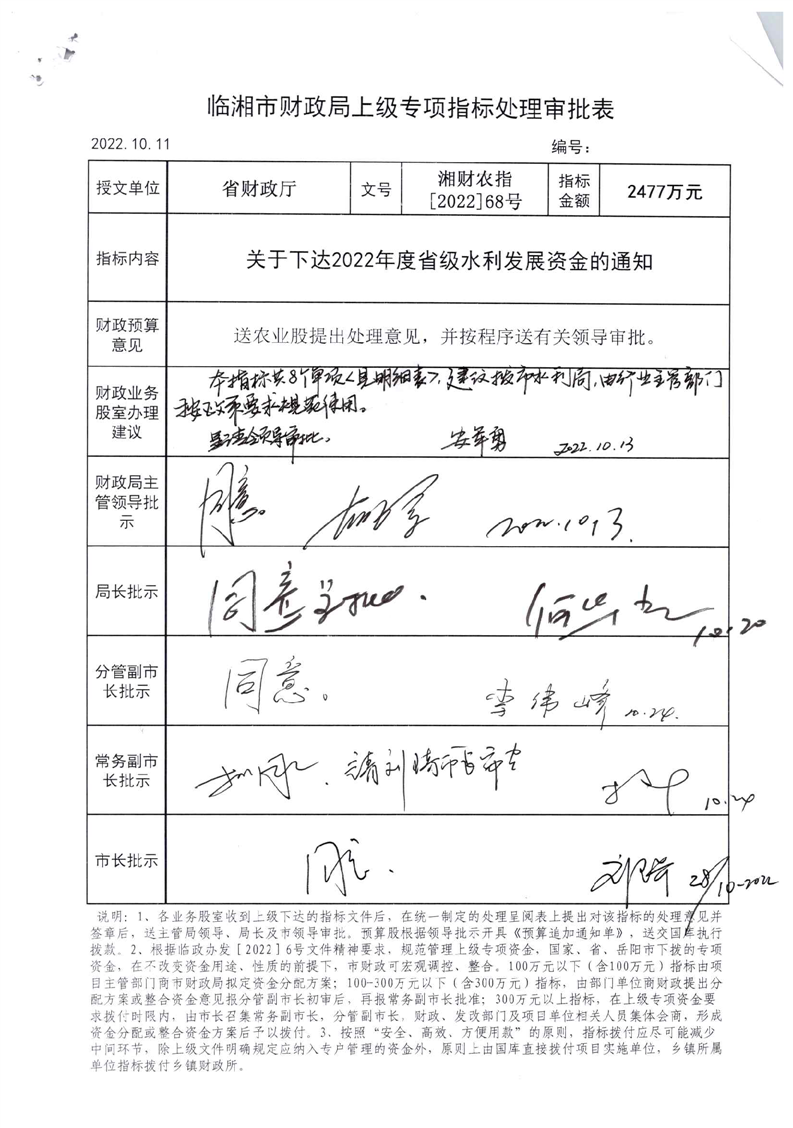 临湘市财政局上级专项指标处理审批表
2022.10.11 编号：
授文单位 省财政厅 文号 湘财农指[2022]68号 指标金额 2477万元
指标内容 关于下达2022年度省级水利发展资金的通知
财政预算意见 送农业股提出处理意见，并按程序送有关领导审批。
财政业务股室办理建议
本指标共8个单项《见明细表》，建议拨市水利局，由行业主管部门
按政策要求规范使用。
呈请领导审批。 2022.10.13
财政局主管领导批示 同意 2022.10.13.
局长批示 同意 10.20
分管副市长批示 同意。 李伟峰 10.24.
常务副市长批示 请刘琦市长审定 10.24
市长批示 同意. 刘琦 28/10-2022
说明：1、各业务股室收到上级下达的指标文件后，在统一制定的处理呈阅表上提出对该指标的处理意见并
签章后，送主管局领导、局长及市领导审批。预算股根据领导批示开具《预算追加通知单》，送交国库执行
拨款。2、根据临政办发[2022]6号文件精神要求，规范管理上级专项资金，国家、省、岳阳市下拨的专项
资金，在不改变资金用途、性质的前提下，市财政可宏观调控、整合。100万元以下（含100万元）指标由项
目主管部门商市财政局拟定资金分配方案；100-300万元以下（含300万元）指标，由部门单位商财政提出分
配方案或整合资金意见报分管副市长初审后，再报常务副市长批准；300万元以上指标，在上级专项资金要
求拨付时限内，由市长召集常务副市长，分管副市长。财政、发改部门及项目单位相关人员集体会商，形成
资金分配或整合资金方案后予以拨付。3、按照“安全、高效、方便用款”的原则，指标拨付应尽可能减少
中间环节，除上级文件明确规定应纳入专户管理的资金外，原则上由国库直接拨付项目实施单位，乡镇所属
单位指标拨付乡镇财政所。